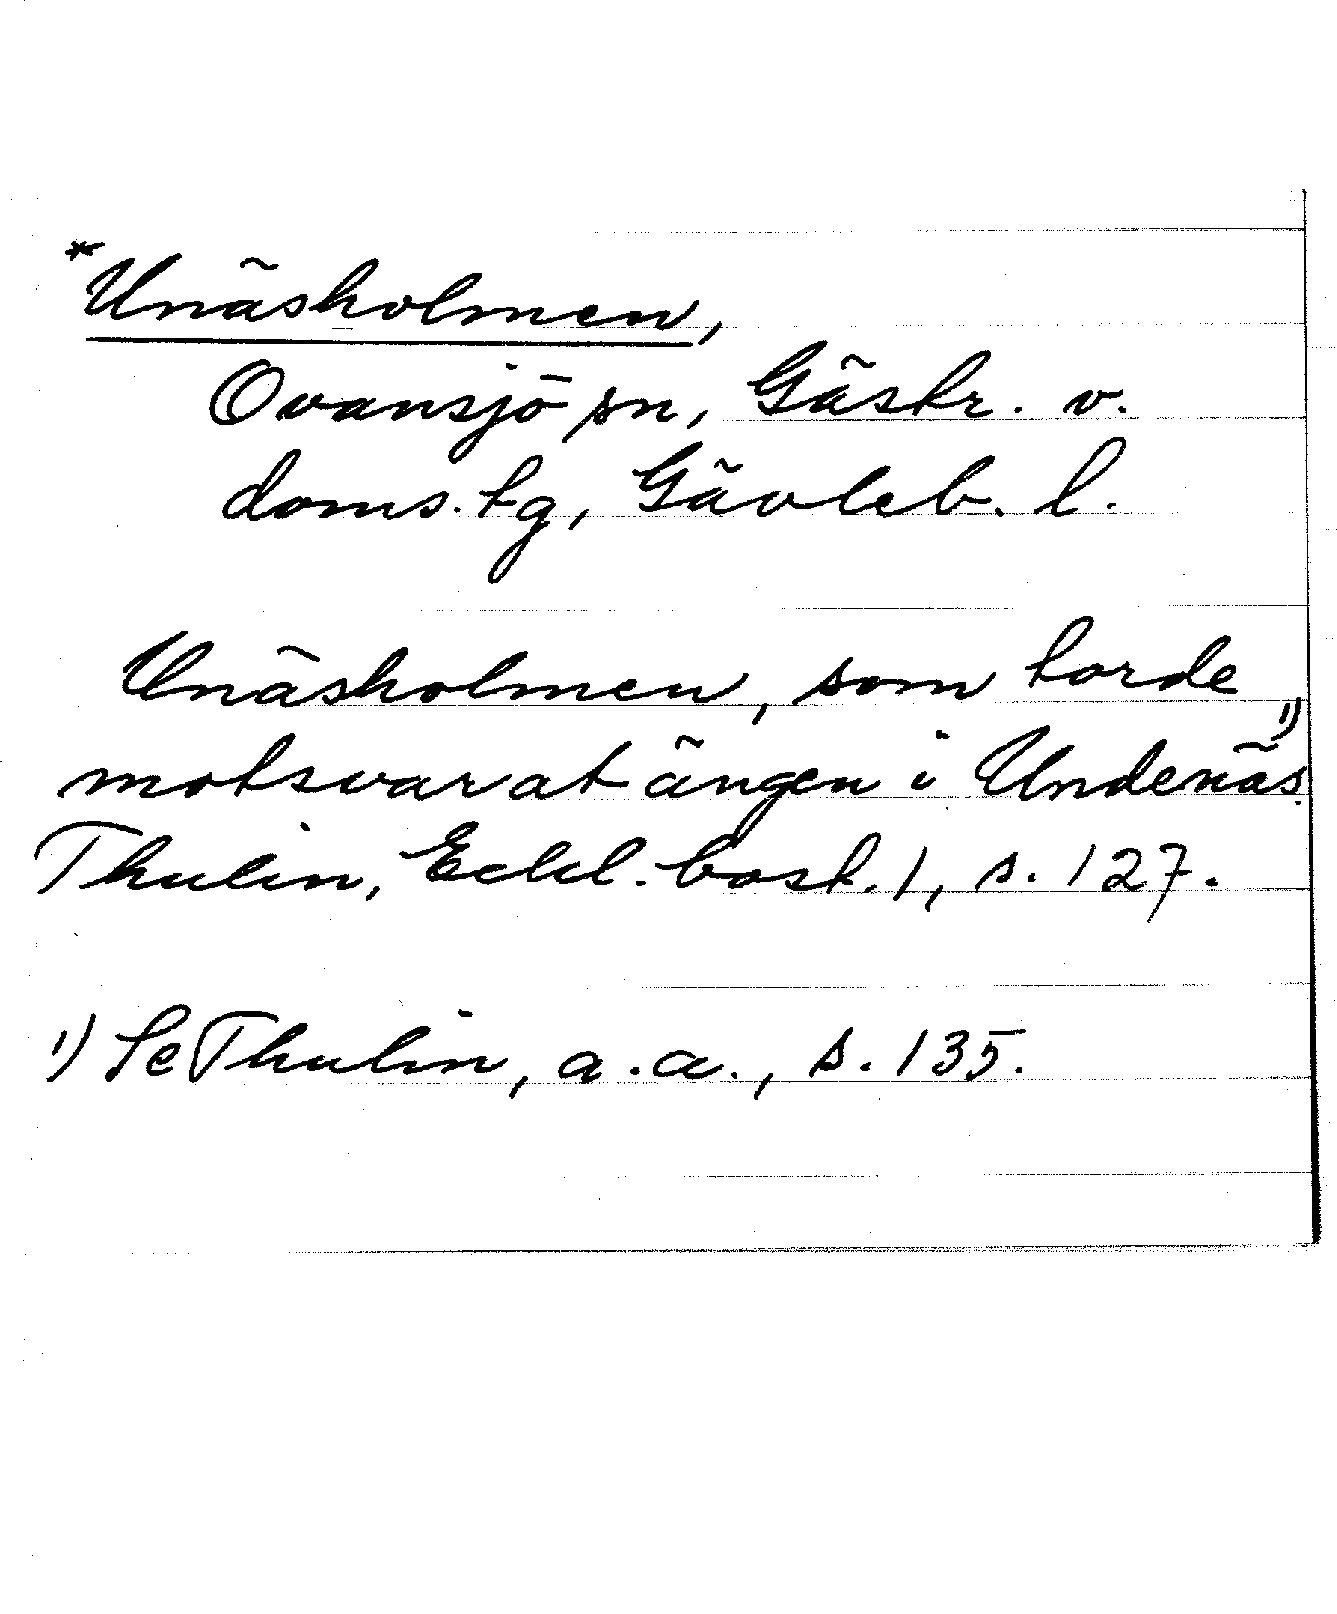 *Unäsholmen,
Ovansjö sn, Gästr. v.
doms. tg, Gävleb. l.
Unäsholmen, som torde
motsvarat ängen i Undenäs 1).
Thulin, Eckl. bost. 1, s. 127.
1) Se Thulin, a.a., s. 135.